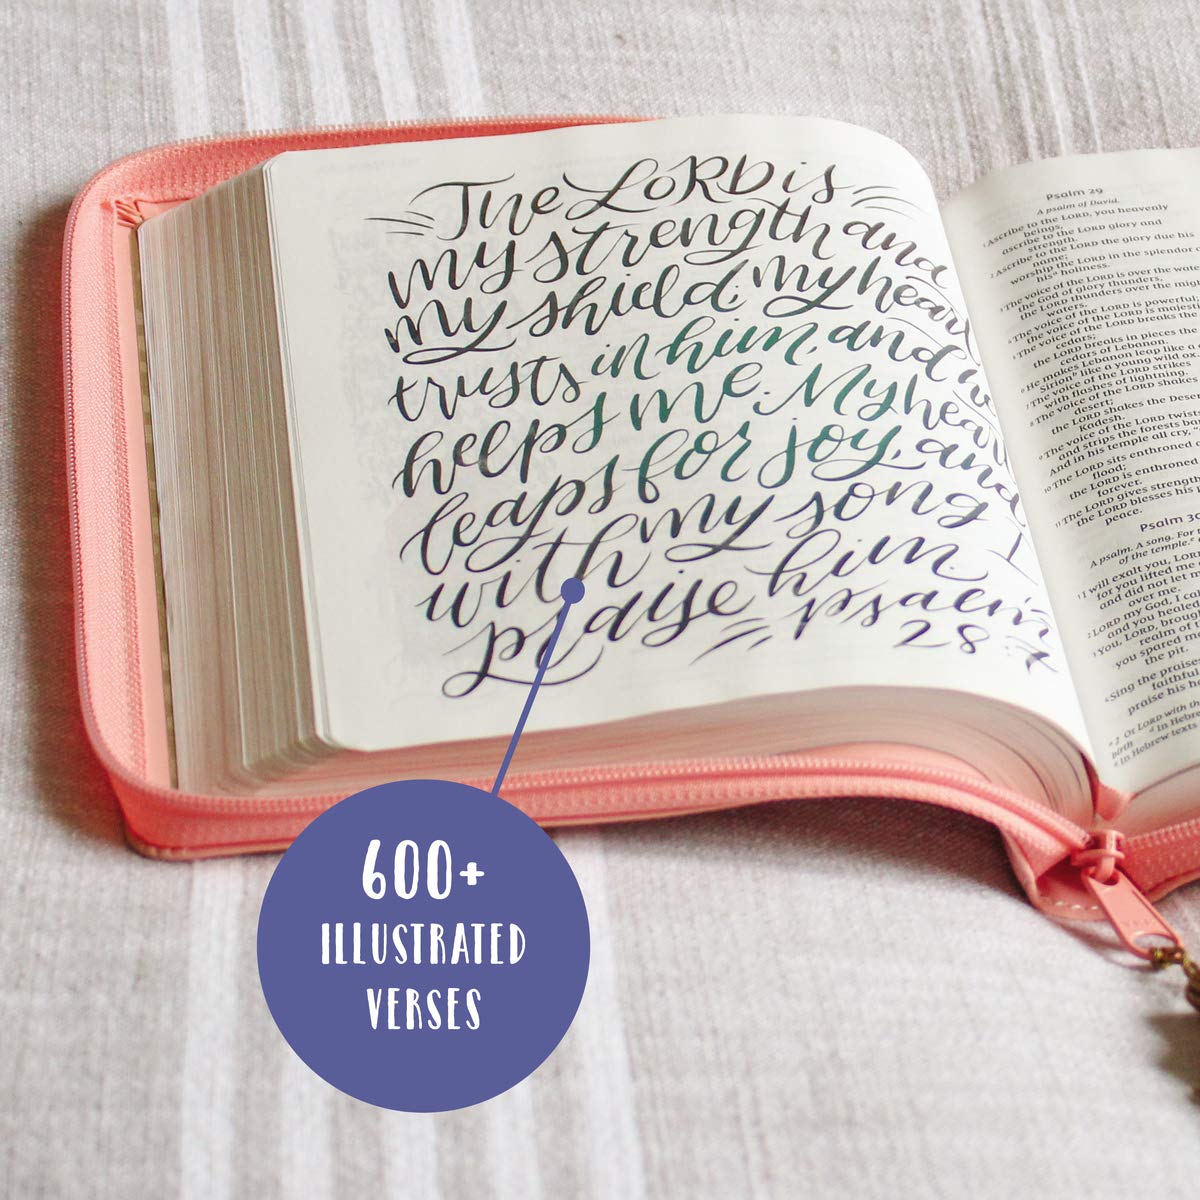 The LORD is
my strength and
my shield; my heart
trusts in him, and he
helps me. My heart
leaps for joy, and
with my song I
praise him.
psalm
28:7
Psalm 29
A psalm of David.
1 Ascribe to the LORD, you heavenly
beings,
ascribe to the LORD glory and
strength.
2 Ascribe to the LORD the glory due his
name;
worship the LORD in the splendor
his holiness.
3 The voice of the LORD is over the
the God of glory thunders,
the LORD thunders over the
waters.
4 The voice of the LORD is powerful
the voice of the LORD is
5 The voice of the LORD breaks the
cedars;
the LORD breaks in pieces the
cedars of Lebanon.
6 He makes Lebanon leap like
Sirion like a young wild ox.
7 The voice of the LORD strikes
with flashes of lightning.
8 The voice of the LORD shakes
desert;
the LORD shakes the Desert
Kadesh.
9 The voice of the LORD twists
and strips the forests
And in his temple all cry,
10 The LORD sits enthroned
flood;
the LORD is enthroned
forever.
11 The LORD gives strength
the LORD blesses his
peace.
Psalm 30
A psalm. A song. For
of the temple.
1 I will exalt you, LORD
for you lifted me
and did not let
over me.
2 LORD my God, I
and you healed
3 You, LORD, brought
realm of
you spared
the pit.
4 Sing the praises
faithful
praise his
Or LORD with
birth
In Hebrew
In Hebrew texts
600+
ILLUSTRATED
VERSES